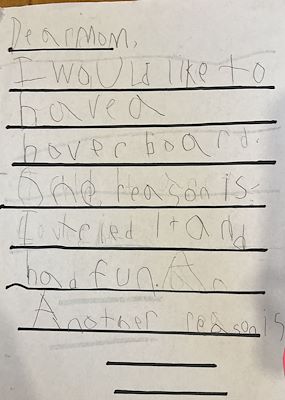 Dear Mom,
I would like to
have a
hover board.
One reason is:
I outelled it and
had fun. An
Another reason is